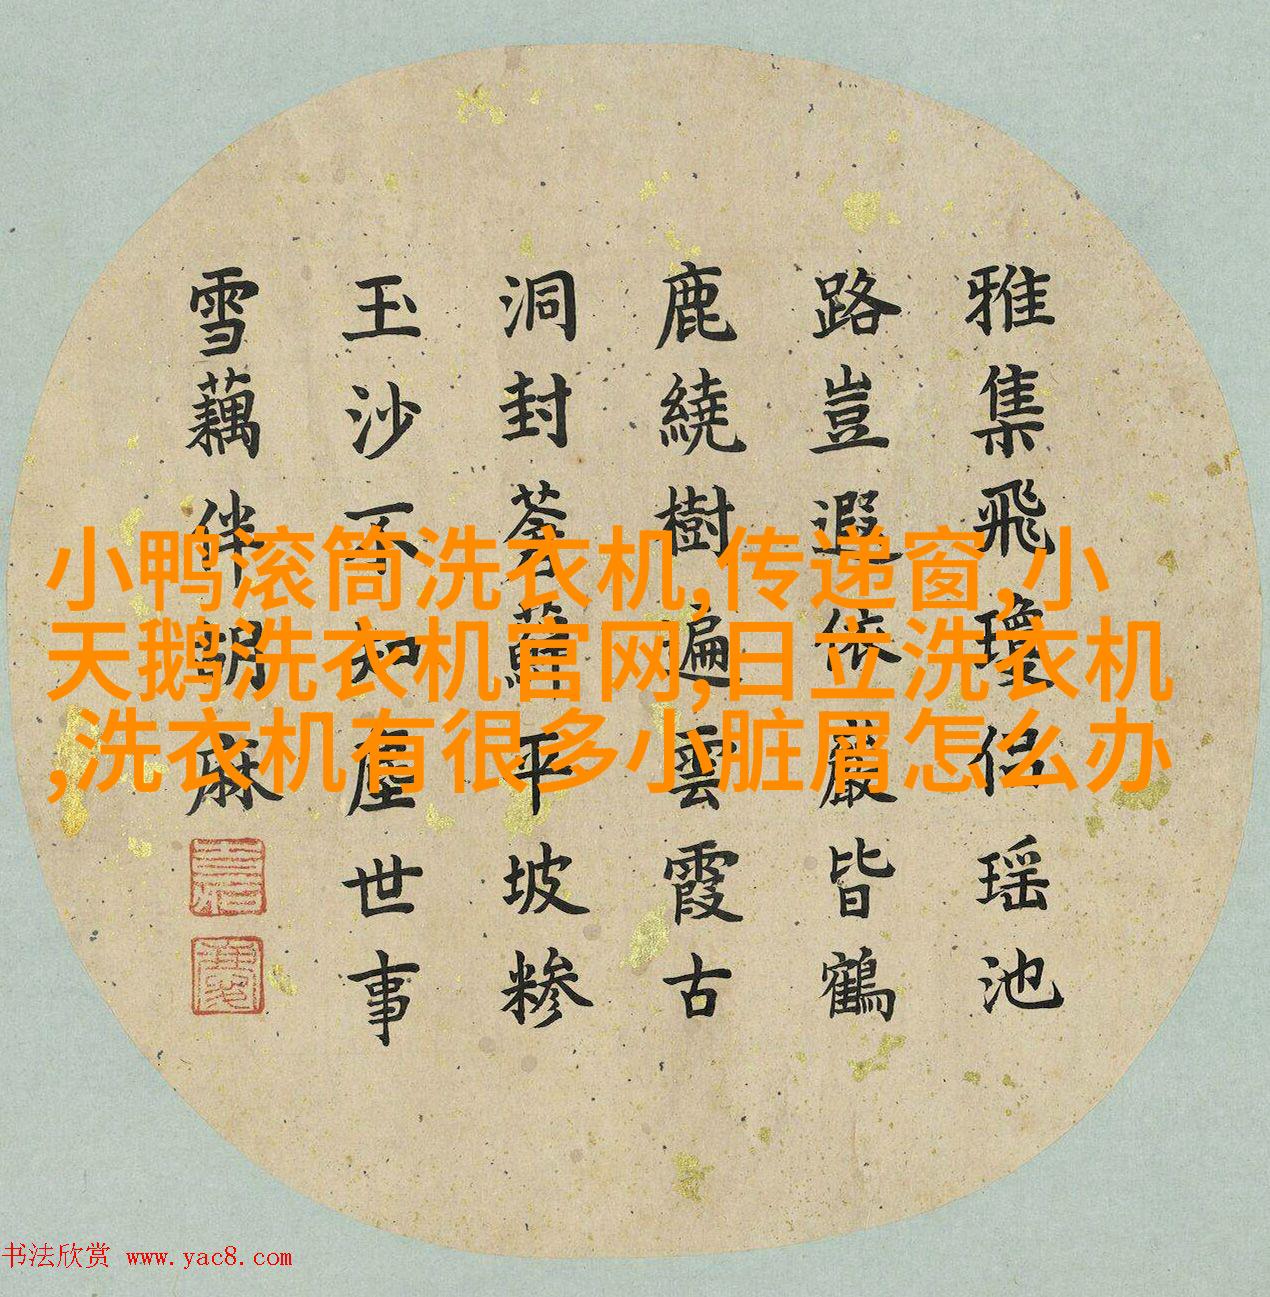 小鸭滚筒洗衣机,传递窗,小
天鹅洗衣机官网,日立洗衣机
,洗衣机有很多小脏屑怎么办
雅集飛瓊侶瑶池
路豈遐依巖皆鶴
鹿繞樹遍雲霞古
洞封蘚平坡糝
玉沙不知塵世事
雪藕伴麻
书法欣赏 www.yac8.com